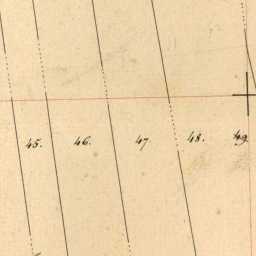 45. 46. 47. 48. 49.